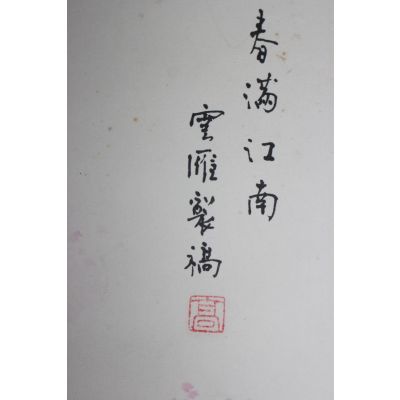 春滿江南
雲雁製稿
高